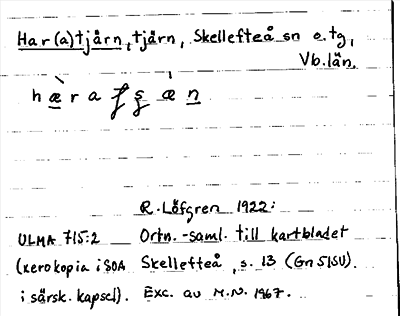 Har(a)tjårn, tjårn, Skellefteå sn o. tg,
Vb. län.
R. Löfgren 1922:
ULMA 715:2 Ortn.-saml. till kartbladet
(xerokopia i SOA Skellefteå, s. 13 (Gn 51SU).
i särsk. kapsel). Exc. av M.N. 1967.